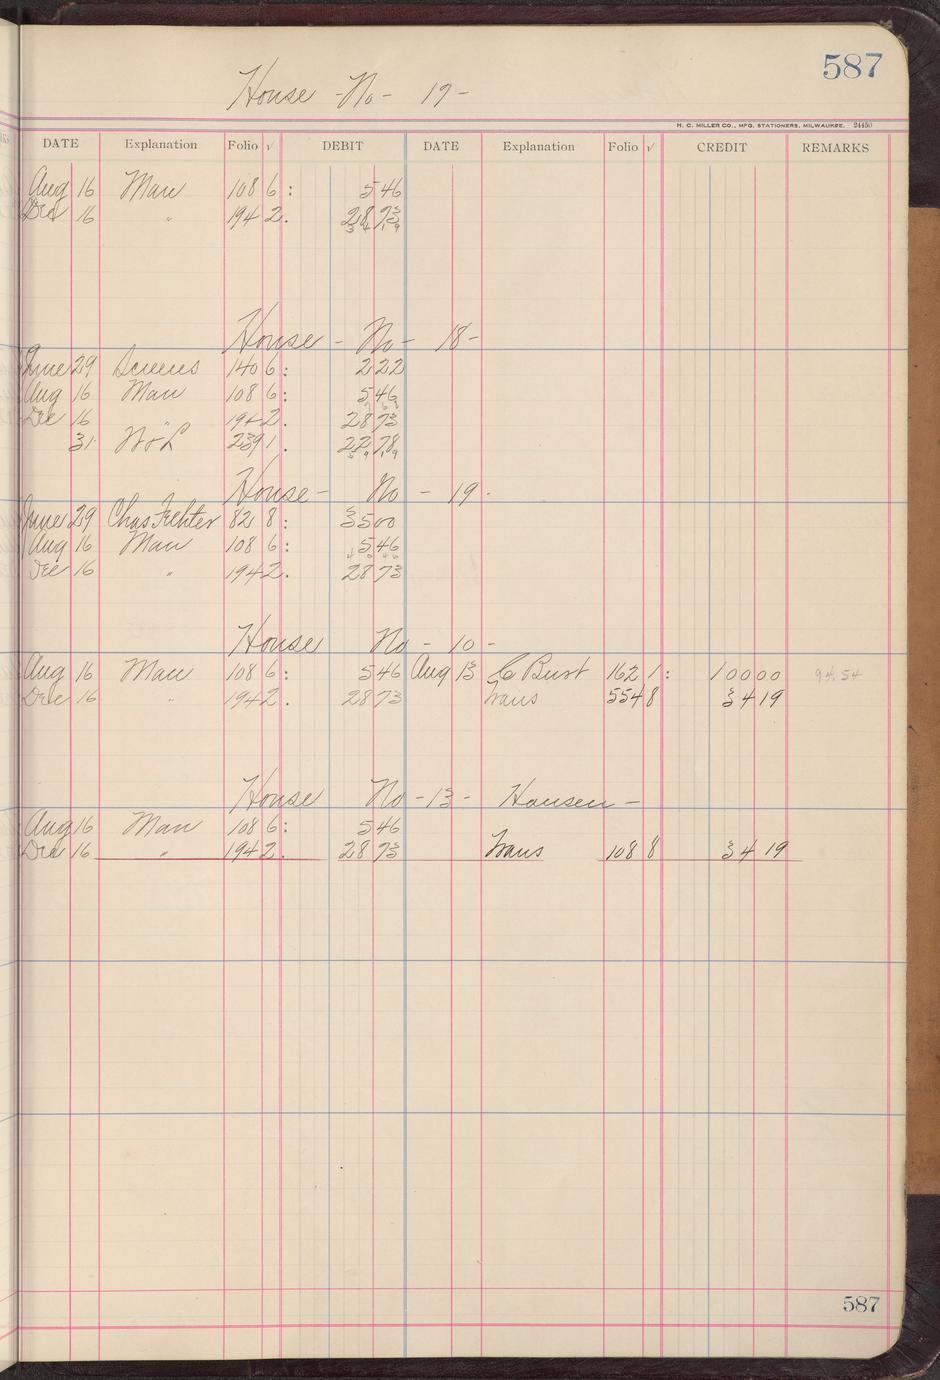 587
House - No - 17 -
H. C. MILLER CO., MFG. STATIONERS, MILWAUKEE. 24450
DATE Explanation Folio √ DEBIT DATE Explanation Folio √ CREDIT REMARKS
Aug 16 Man 108 6 : 5 46
Dec 16 " 194 2. 28 73
34 19
House - No - 18 -
June 29 Screens 140 6 : 2 22
Aug 16 Man 108 6 : 5 46
Dec 16 " 194 2. 28 73
31 239 1. 22 78
59 19
House - No - 19 -
June 29 Chas Fechter 82 8 : 35 00
Aug 16 Man 108 6 : 5 46
Dec 16 " 194 2. 28 73
House No - 10 -
Aug 16 Man 108 6 : 5 46 Aug 13 C Bust 162 1 : 100 00 94.54
Dec 16 " 194 2. 28 73 Trans 554 8 34 19
House No - 13 - Hansen -
Aug 16 Man 108 6 : 5 46
Dec 16 " 194 2. 28 73 Trans 108 8 34 19
587